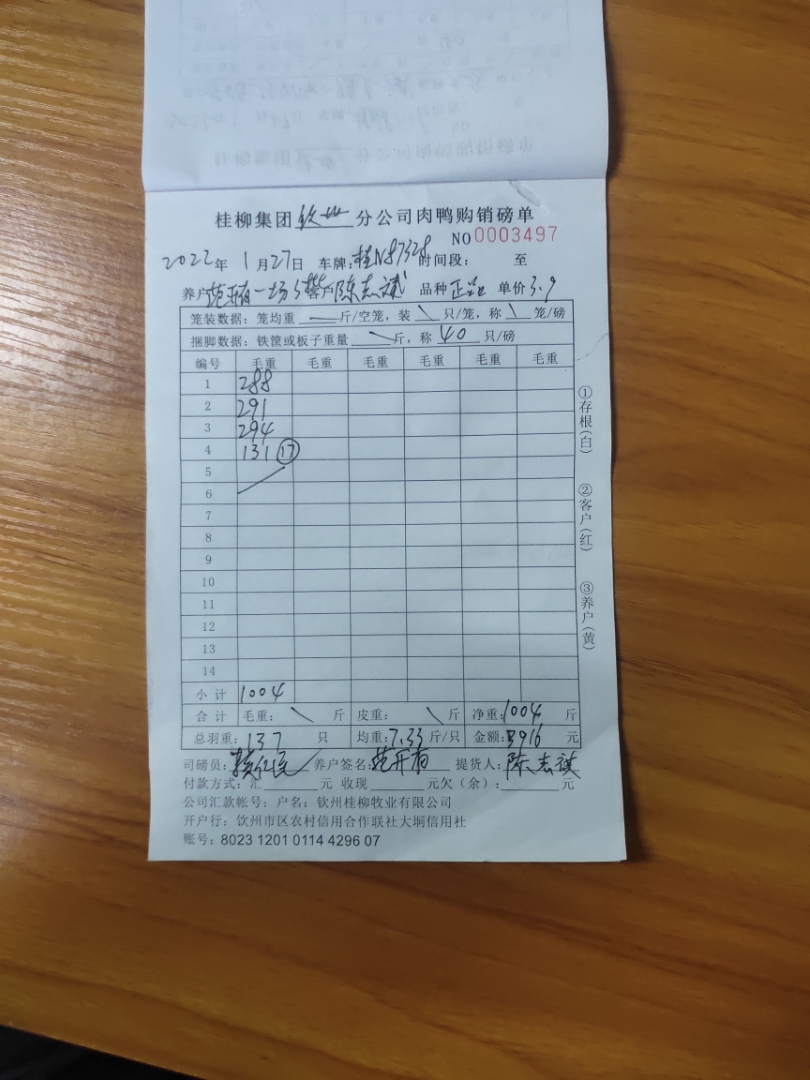 桂柳集团钦州分公司肉鸭购销磅单
NO 0003497
2022年1月27日 车牌:桂N87328 时间段: 至
养户 范开有一场 陈志斌 品种 正品 单价 3.9
笼装数据: 笼均重 斤/空笼, 装 只/笼, 称 笼/磅
捆脚数据: 铁筐或板子重量 斤, 称 40 只/磅
编号 毛重 毛重 毛重 毛重 毛重 毛重
1 288
2 291
3 294
4 131 ⑰
5
6
7
8
9
10
11
12
13
14
小计 1004
合计 毛重: \ 斤 皮重: \ 斤 净重: 1004 斤
总羽重: 137 只 均重: 7.33 斤/只 金额: 3916 元
司磅员: 养户签名: 范开有 提货人: 陈志斌
付款方式: 汇 元 收现 元欠(余): 元
公司汇款帐号: 户名: 钦州桂柳牧业有限公司
开户行: 钦州市区农村信用合作联社大垌信用社
账号: 8023 1201 0114 4296 07
①存根(白)
②客户(红)
③养户(黄)